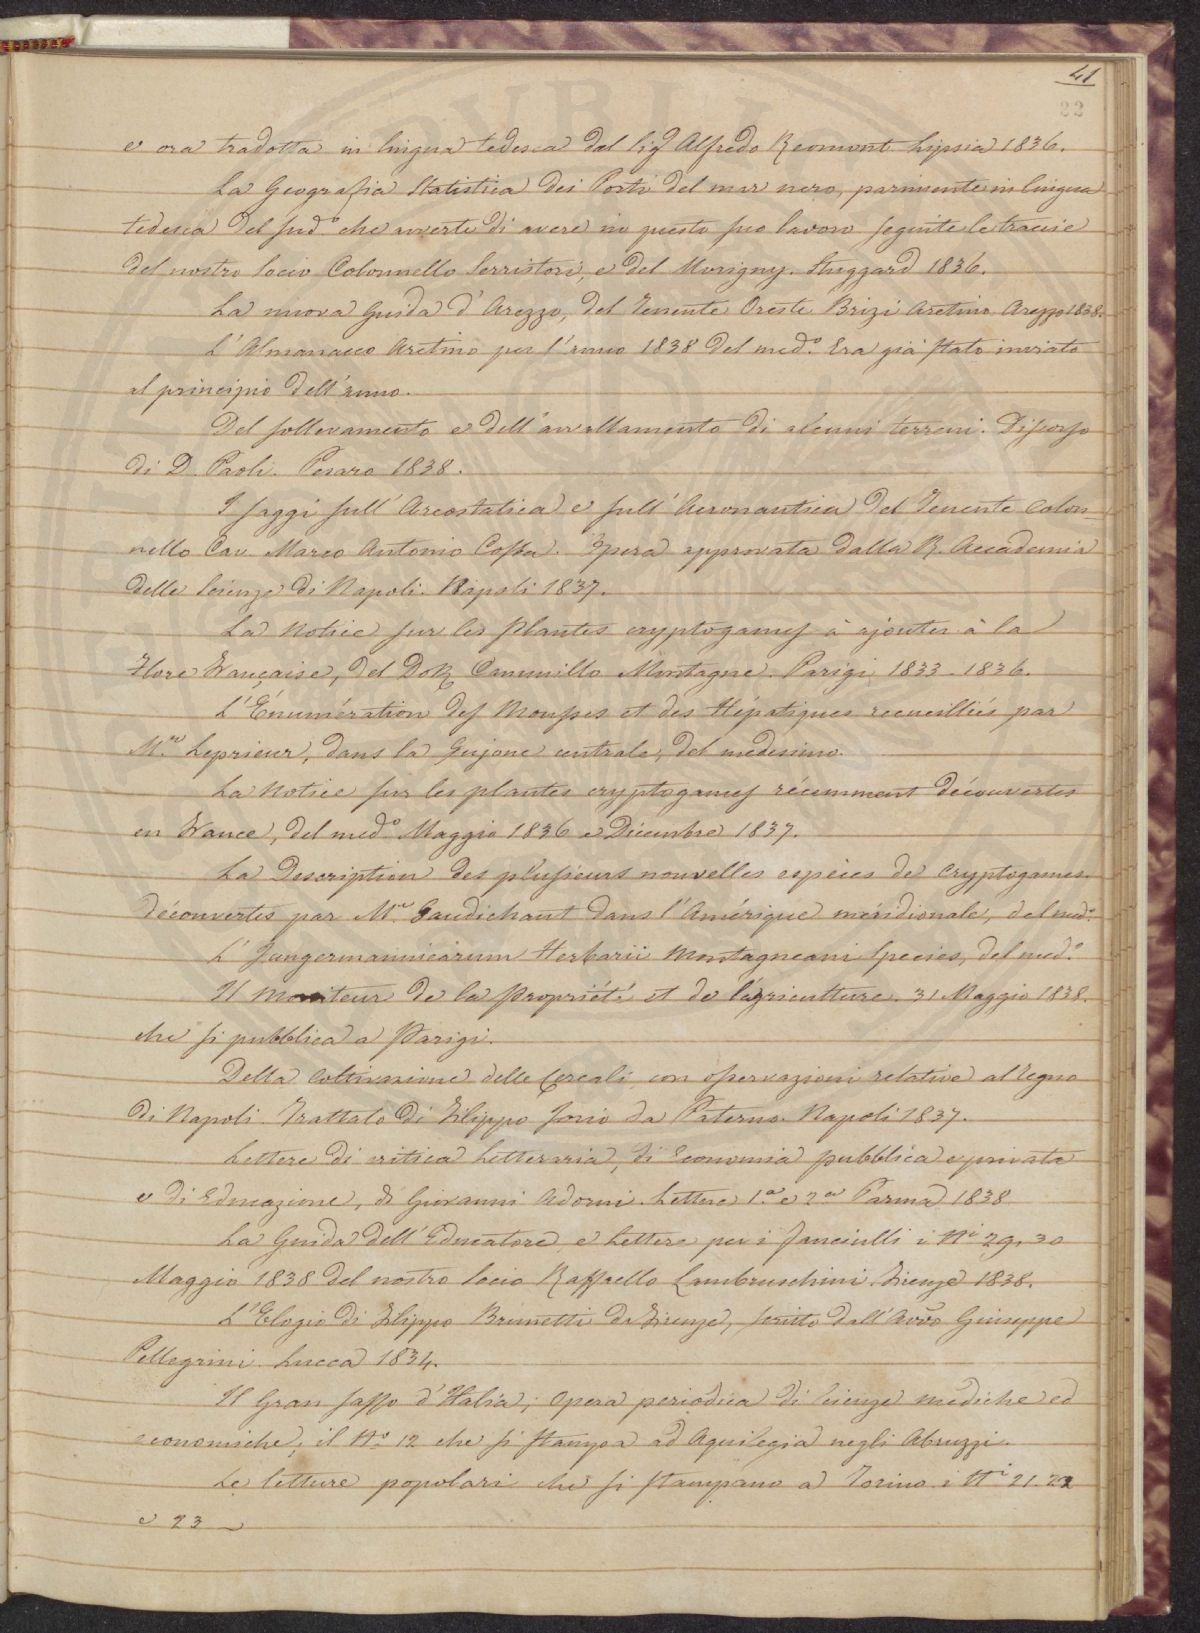 41
22
e ora tradotta in lingua tedesca dal Sigr Alfredo Reomont Lipsia 1836.
La Geografia Statistica dei Porti del mar nero, parimente in lingua
tedesca del sudo che avverte di avere in questo suo lavoro seguite le traccie
del nostro socio Colonnello Serristori, e del Marigny. Stuggard 1836.
La nuova Guida d'Arezzo, del Tenente Oreste Brizi Aretino Arezzo 1838.
L'Almanacco Aretino per l'anno 1838 del medo. Era già stato inviato
al principio dell'anno.
Del sollevamento e dell'avvallamento di alcuni terreni. Discorso
di D. Paoli. Pesaro 1838.
I saggi sull'Areostatica e sull'Aeronautica del Tenente Colon-
nello Cav. Marco Antonio Costa. Opera approvata dalla R. Accademia
delle Scienze di Napoli. Napoli 1837.
La Notice sur les Plantes cryptogames à ajouter à la
Flore Française, del Dott Cammillo Montagne. Parigi 1833-1836.
L'Énumération des Mousses et des Hépatiques recueilliés par
M.r Leprieur, dans la Gujone centrale, del medesimo.
La Notice sur les plantes cryptogames récemment découvertes
en France, del medo Maggio 1836 e Dicembre 1837.
La Description des plusieurs nouvelles espèces de Cryptogames.
découvertes par M.r Gaudichaut dans l'Amérique méridionale, del medo.
L'Jungermannicarum Herbarii Montagneani Species, del medo.
Il Moniteur de la Propriété et de l'agriculture. 31 Maggio 1838.
che si pubblica a Parigi.
Della coltivazione delle Cereali con osservazioni relative al regno
di Napoli. Trattato di Filippo Jorio da Paterno. Napoli 1837.
Lettere di critica Letteraria, di Economia pubblica e privata
e di Educazione, di Giovanni Adorni. Lettere 1.a e 2a Parma 1838
La Guida dell'Educatore e Letture per i fanciulli i Ni 29, 30
Maggio 1838 del nostro socio Raffaello Lambruschini. Firenze 1838.
L'Elogio di Filippo Brunetti da Firenze, scritto dall'Avvo Giuseppe
Pellegrini. Lucca 1834.
Il Gran Sasso d'Italia; opera periodica di Scienze mediche ed
economiche; il No 12 che si stampa ad Aquilegia negli Abruzzi.
Le letture popolari che si stampano a Torino i Ni 21. 22
e 23